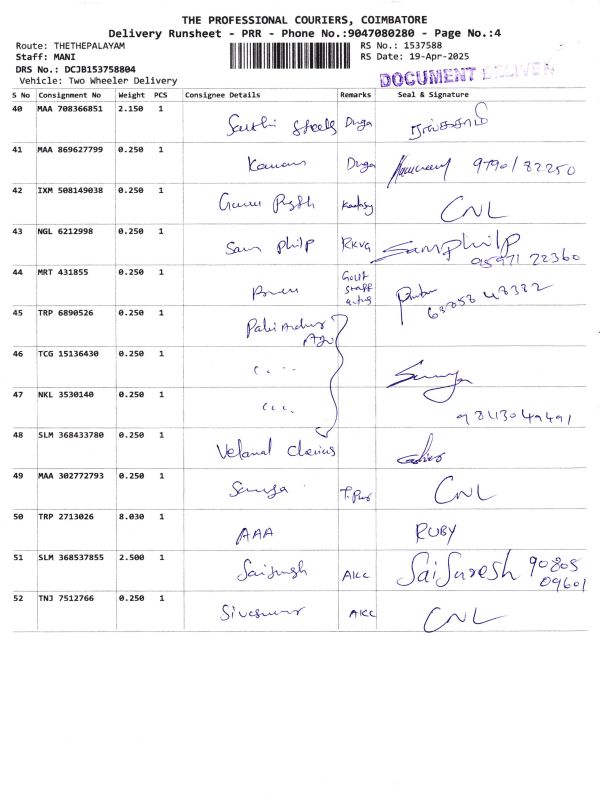 THE PROFESSIONAL COURIERS, COIMBATORE
Delivery Runsheet - PRR - Phone No.:9047080280 - Page No.:4
Route: THETHEPALAYAM RS No.: 1537588
Staff: MANI RS Date: 19-Apr-2025
DRS No.: DCJB153758804
Vehicle: Two Wheeler Delivery
DOCUMENT DELIVER
S No Consignment No Weight PCS Consignee Details Remarks Seal & Signature
40 MAA 708366851 2.150 1 Sakthi Steels Durga
41 MAA 869627799 0.250 1 Kannan Durga 97901 82250
42 IXM 508149038 0.250 1 CNL
43 NGL 6212998 0.250 1 Sam philp RKVG Sam philp
95971 22360
44 MRT 431855 0.250 1 Govt
staff
63858 48332
45 TRP 6890526 0.250 1
46 TCG 15136430 0.250 1
47 NKL 3530140 0.250 1 9843049491
48 SLM 368433780 0.250 1
49 MAA 302772793 0.250 1 CNL
50 TRP 2713026 8.030 1 AAA RUBY
51 SLM 368537855 2.500 1 AKCC SaiSuresh 90805
09601
52 TNJ 7512766 0.250 1 AKCC CNL